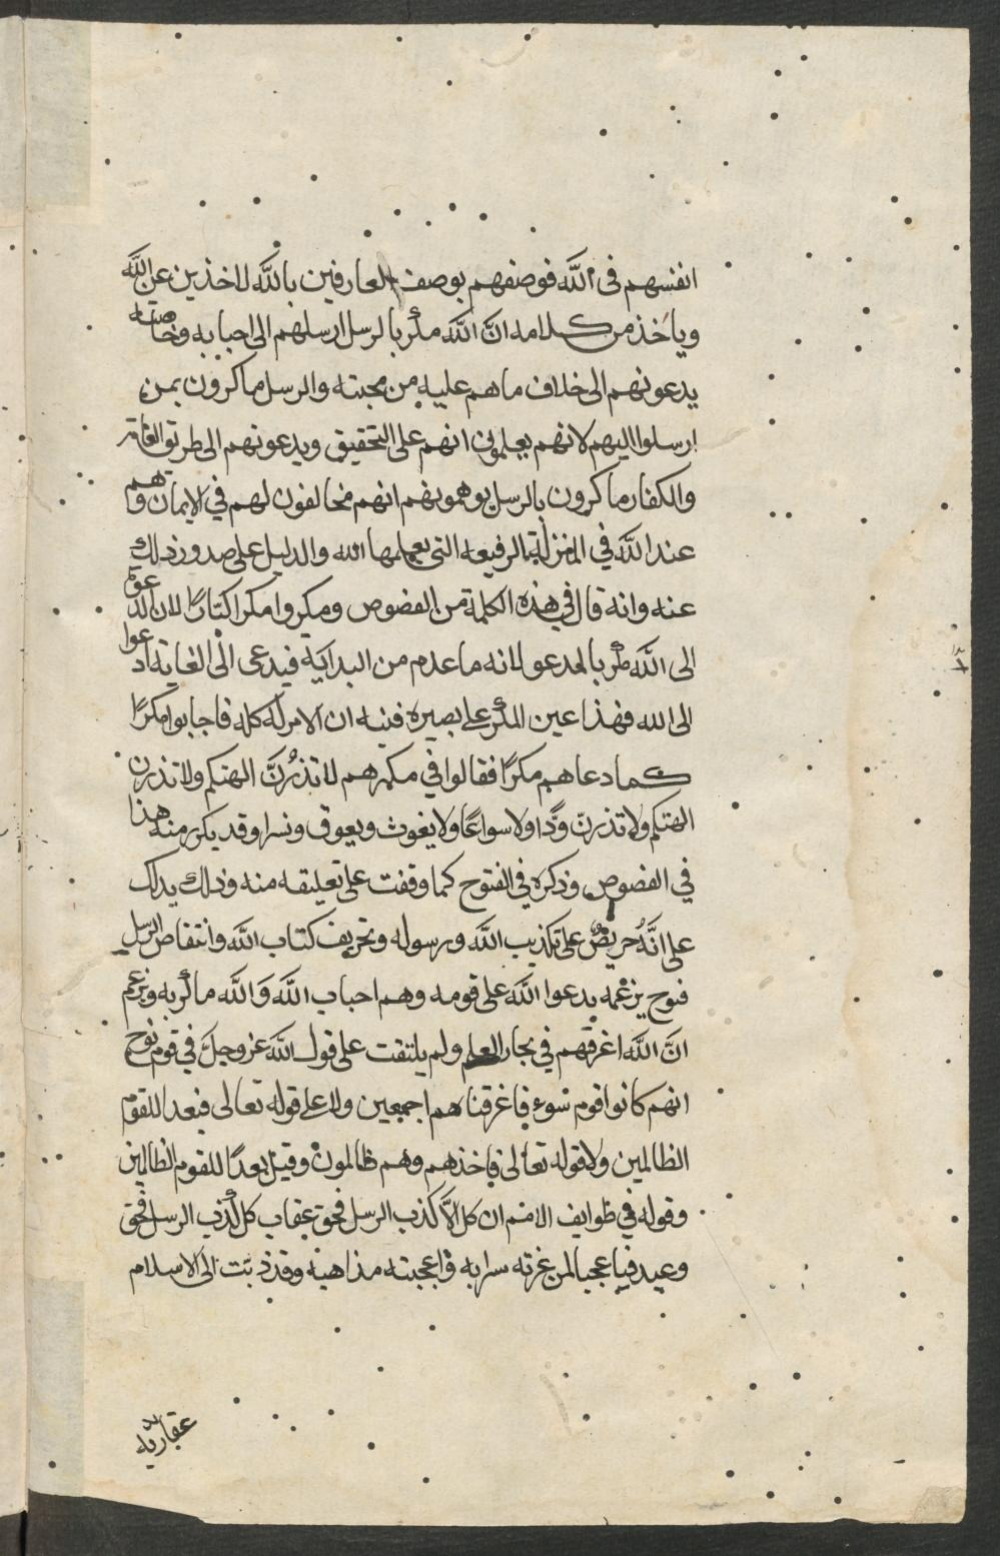 انفسهم فى الله فوصفهم بوصف العارفين بالله لاخذين عن الله
وياخذ من كلامه انّ الله مكر بالرسل ارسلهم الى احبابه وخاصته
يدعونهم الى خلاف ما هم عليه من محبته والرسل ماكرون بمن
ارسلوا اليهم لانهم يعلمون انهم على التحقيق ويدعونهم الى طريق
والكفار ماكرون بالرسل يوهمونهم انهم مخالفون لهم في الايمان وهم
عند الله في المنزلة الرفيعه التى يعلمها الله والدليل على صدور ذلك
عنه وانه قال في هذه الكلمة من الفصوص ومكروا مكرا كبّارًا لان الدعوة
الى الله مكر بالمدعو لانه ما عدم من البداية فيدعى الى الغاية ادعوا
الى الله فهذا عين المكر على بصيرة فنبه ان الامر له كله فاجابوا مكرًا
كما دعاهم مكرًا فقالوا في مكرهم لا تذرُنّ الهتكم ولا تذرن
الهتكم ولا تذرنّ ودًّا ولا سواعًا ولا يغوث ويعوق ونسرا وقد يكرر منه هذا
في الفصوص وذكره في الفتوح كما وقفت على تعليقه منه وذلك يدلك
على انّه حريصٌ على تكذيب الله ورسوله وتحريف كتاب الله وانتقاص الرسل
فنوح بزعمه يدعوا الله على قومه وهم احباب الله وَالله ماكر به ويزعم
انّ الله اغرقهم في بحار العلم ولم يلتفت على قول الله عز وجلّ في قوم نوح
انهم كانوا قوم سوء فاغرقناهم اجمعين ولا على قوله تعالى فبعدا للقوم
الظالمين ولا قوله تعالى فاخذهم وهم ظالمون وقيل بعدًا للقوم الظالمين
وقوله في طوايف الامم ان كل الاّ كذب الرسل فحق عقاب كل كذب الرسل فحق
وعيد فيا عجبا لمن غرته سرابه واعجبته مذاهبه وقد دبّت الى الاسلام
عقاربه